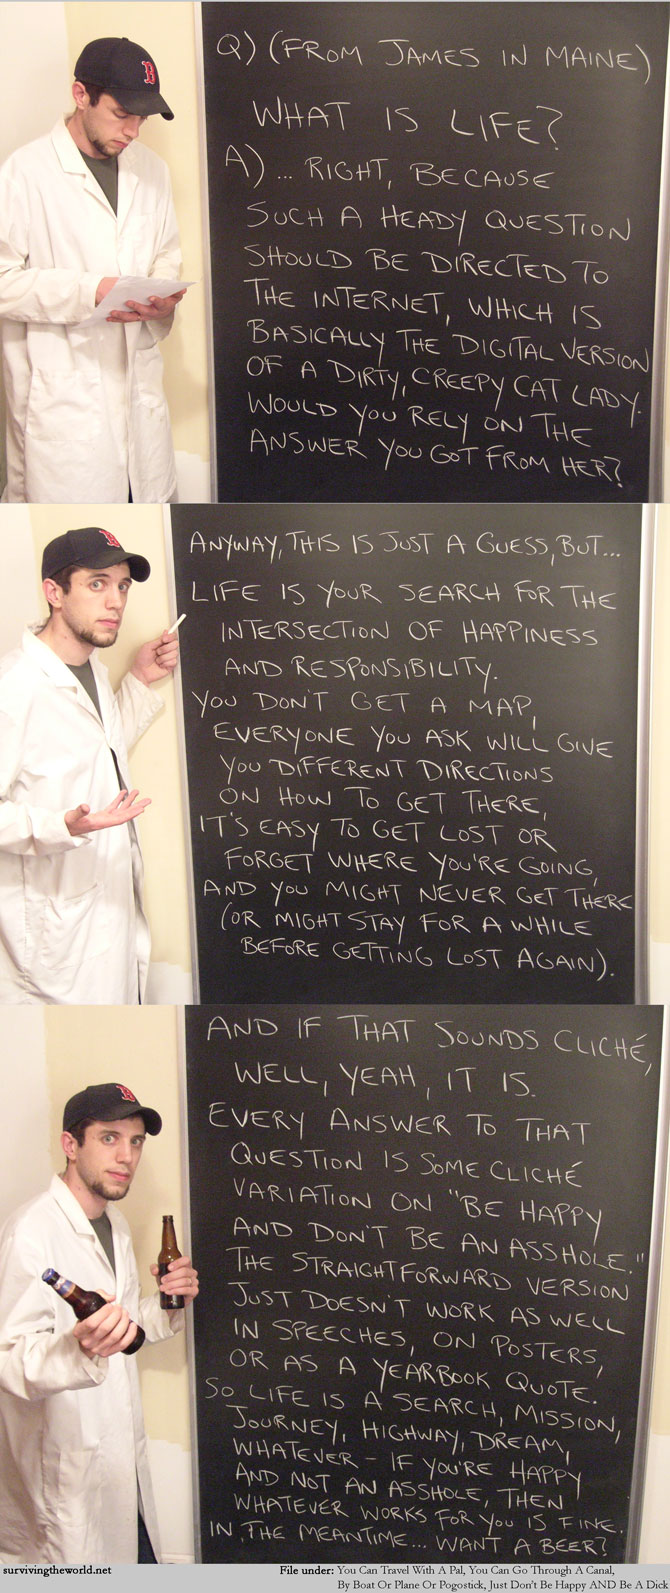 Q) (FROM JAMES IN MAINE)
WHAT IS LIFE?
A) ... RIGHT, BECAUSE
SUCH A HEADY QUESTION
SHOULD BE DIRECTED TO
THE INTERNET, WHICH IS
BASICALLY THE DIGITAL VERSION
OF A DIRTY, CREEPY CAT LADY.
WOULD YOU RELY ON THE
ANSWER YOU GOT FROM HER?
B
ANYWAY, THIS IS JUST A GUESS, BUT...
LIFE IS YOUR SEARCH FOR THE
INTERSECTION OF HAPPINESS
AND RESPONSIBILITY.
YOU DON'T GET A MAP,
EVERYONE YOU ASK WILL GIVE
YOU DIFFERENT DIRECTIONS
ON HOW TO GET THERE,
IT'S EASY TO GET LOST OR
FORGET WHERE YOU'RE GOING,
AND YOU MIGHT NEVER GET THERE
(OR MIGHT STAY FOR A WHILE
BEFORE GETTING LOST AGAIN).
B
AND IF THAT SOUNDS CLICHÉ,
WELL, YEAH, IT IS.
EVERY ANSWER TO THAT
QUESTION IS SOME CLICHÉ
VARIATION ON "BE HAPPY
AND DON'T BE AN ASSHOLE."
THE STRAIGHTFORWARD VERSION
JUST DOESN'T WORK AS WELL
IN SPEECHES, ON POSTERS,
OR AS A YEARBOOK QUOTE.
SO LIFE IS A SEARCH, MISSION,
JOURNEY, HIGHWAY, DREAM,
WHATEVER - IF YOU'RE HAPPY
AND NOT AN ASSHOLE, THEN
WHATEVER WORKS FOR YOU IS FINE.
IN THE MEANTIME... WANT A BEER?
B
survivingtheworld.net
File under: You Can Travel With A Pal, You Can Go Through A Canal,
By Boat Or Plane Or Pogostick, Just Don't Be Happy AND Be A Dick